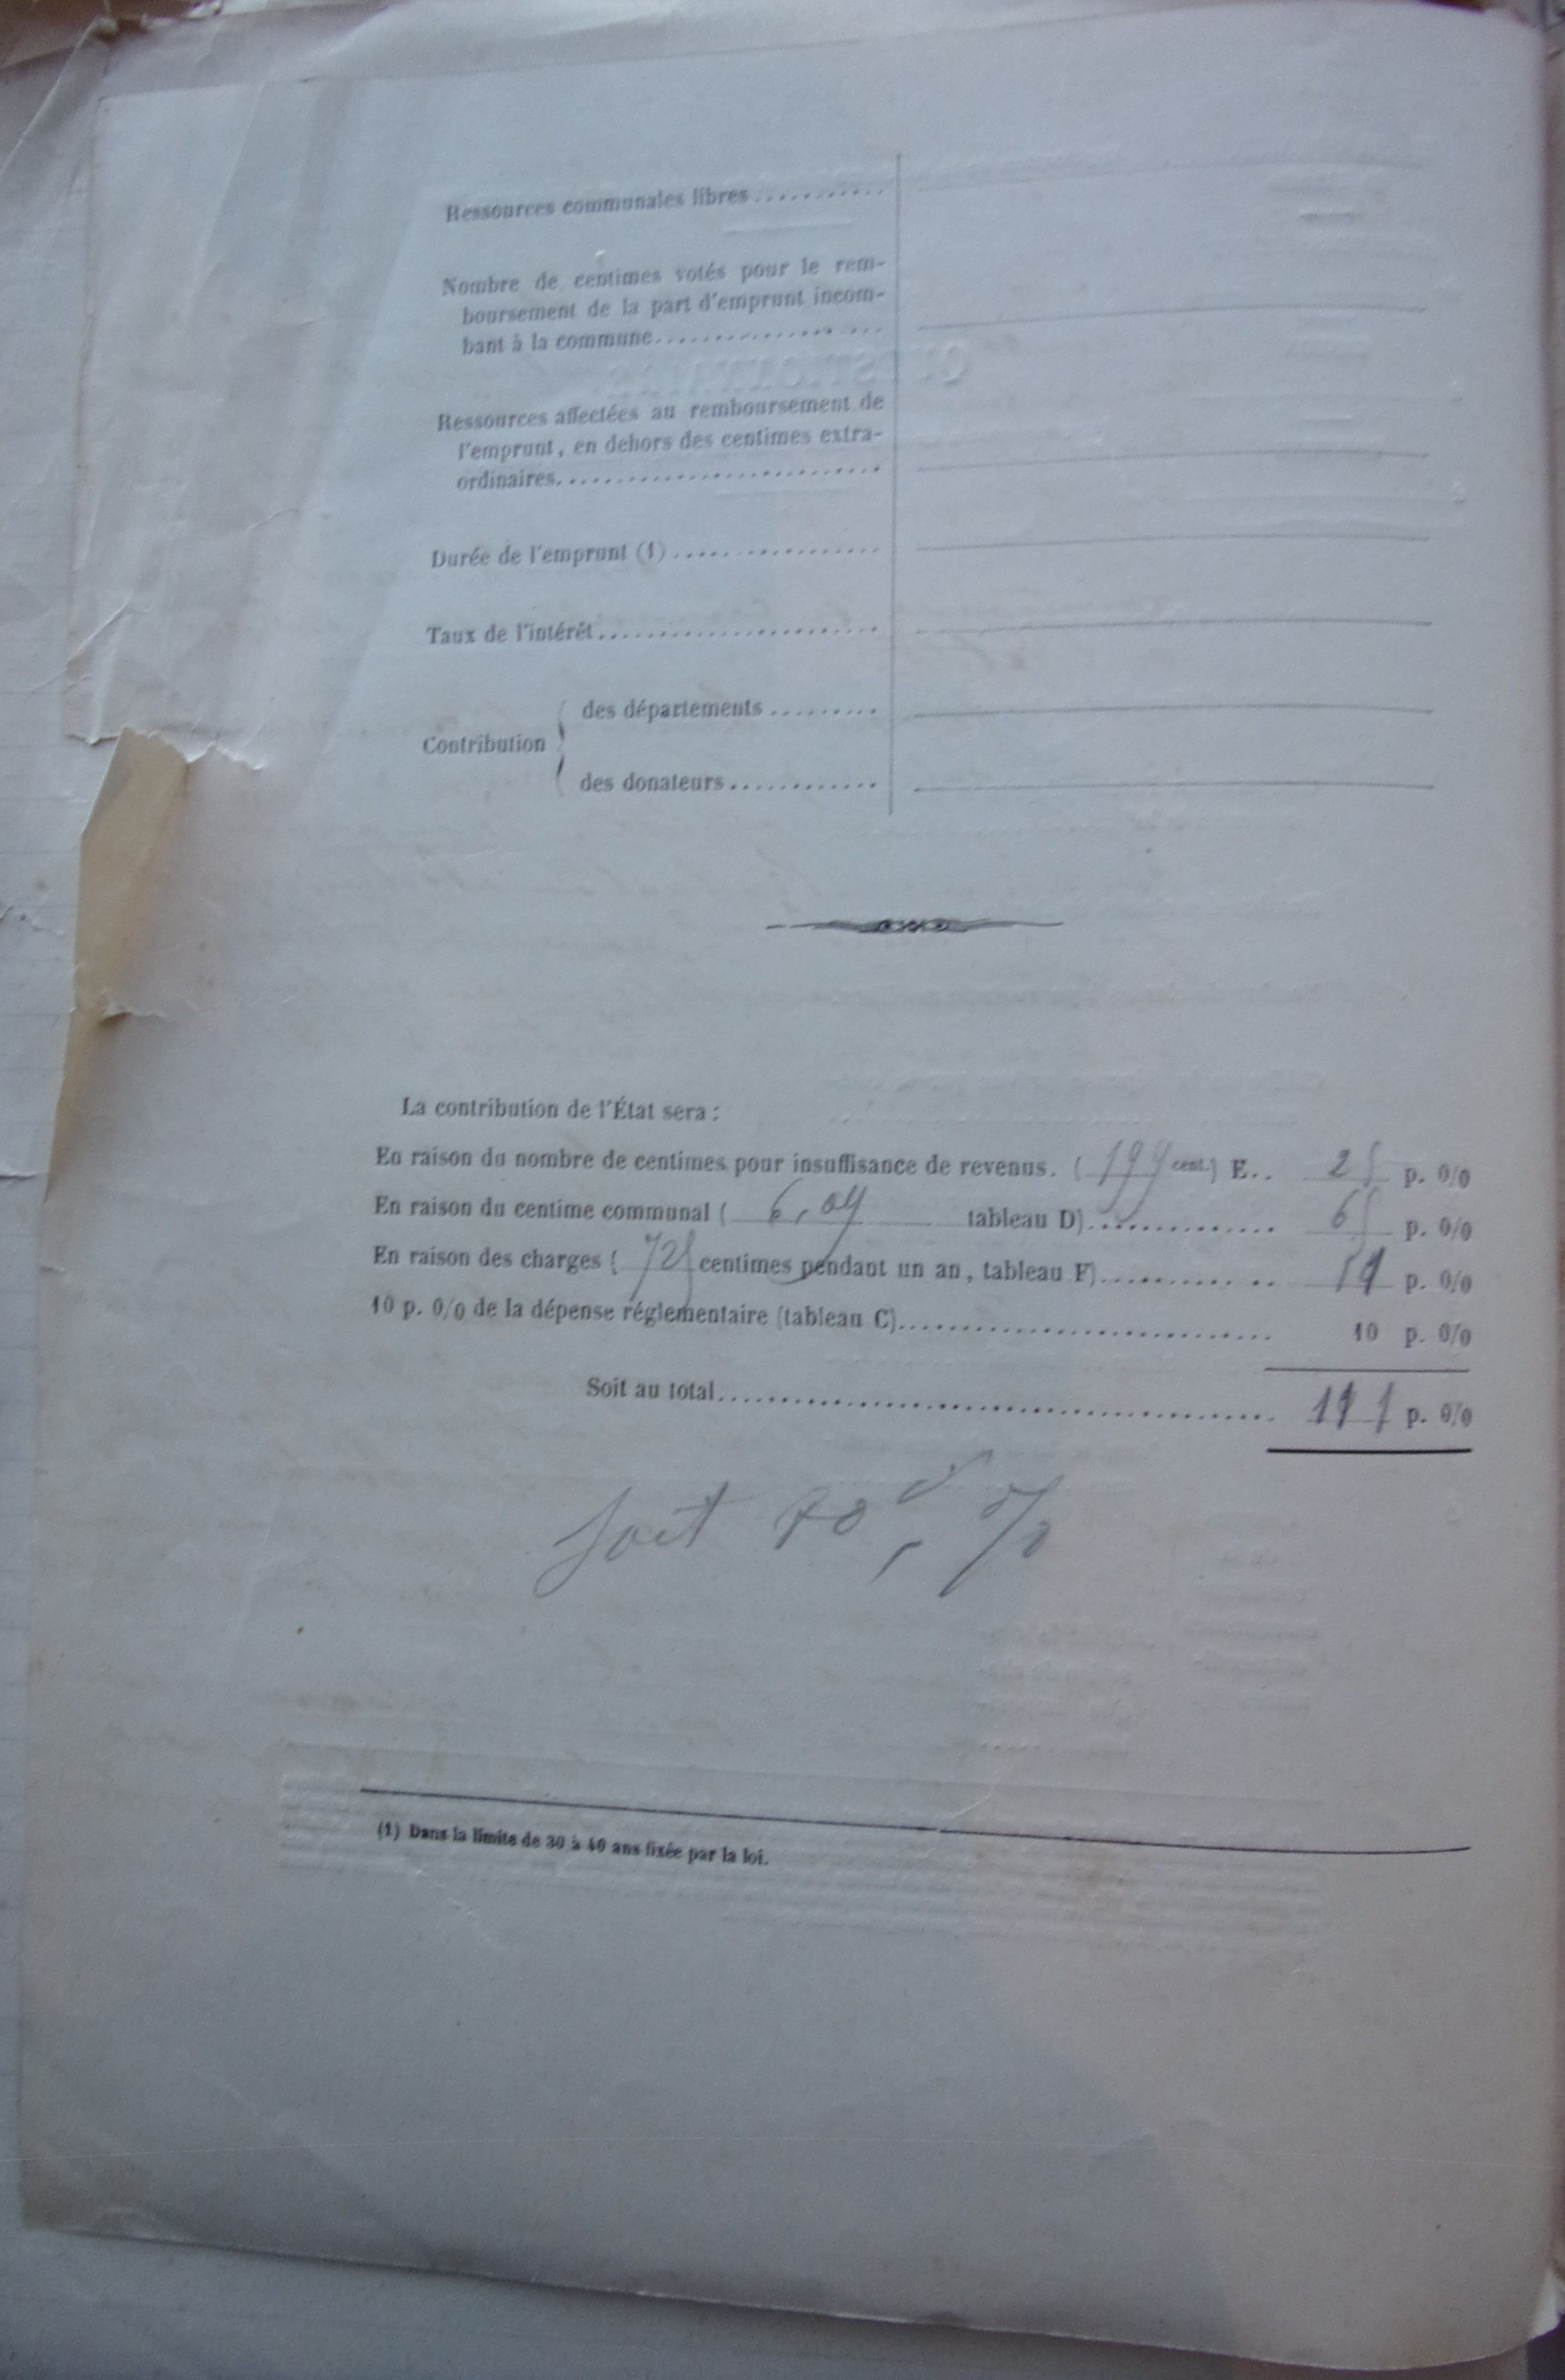 Ressources communales libres...........
Nombre de centimes votés pour le rem-
boursement de la part d'emprunt incom-
bant à la commune...................
Ressources affectées au remboursement de
l'emprunt, en dehors des centimes extra-
ordinaires...........................
Durée de l'emprunt (1)..................
Taux de l'intérêt........................
des départements.........
Contribution
des donateurs............
La contribution de l'État sera :
En raison du nombre de centimes pour insuffisance de revenus. (199 cent.) E.. 25 p. 0/0
En raison du centime communal (6,04 tableau D).............. 65 p. 0/0
En raison des charges (725 centimes pendant un an, tableau F)............ p. 0/0
10 p. 0/0 de la dépense réglementaire (tableau C)............................ 10 p. 0/0
Soit au total............................................. p. 0/0
soit
(1) Dans la limite de 30 à 40 ans fixée par la loi.